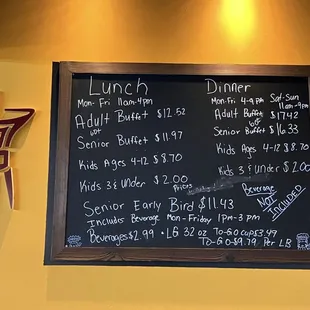 Lunch
Mon-Fri 11am-4pm
Adult Buffet $12.52
65+
Senior Buffet $11.97
Kids Ages 4-12 $8.70
Kids 3 & Under $2.00
Prices
Dinner
Mon-Fri 4-9pm Sat-Sun
11am-9pm
Adult Buffet $17.42
65+
Senior Buffet $16.33
Kids Ages 4-12 $8.70
Kids 3 & Under $2.00
Beverage
NOT
INCLUDED
Senior Early Bird $11.43
Includes Beverage Mon-Friday 1pm-3pm
Beverages $2.99 • LG 32 oz To-Go cup $3.49
To-Go $9.79 Per LB